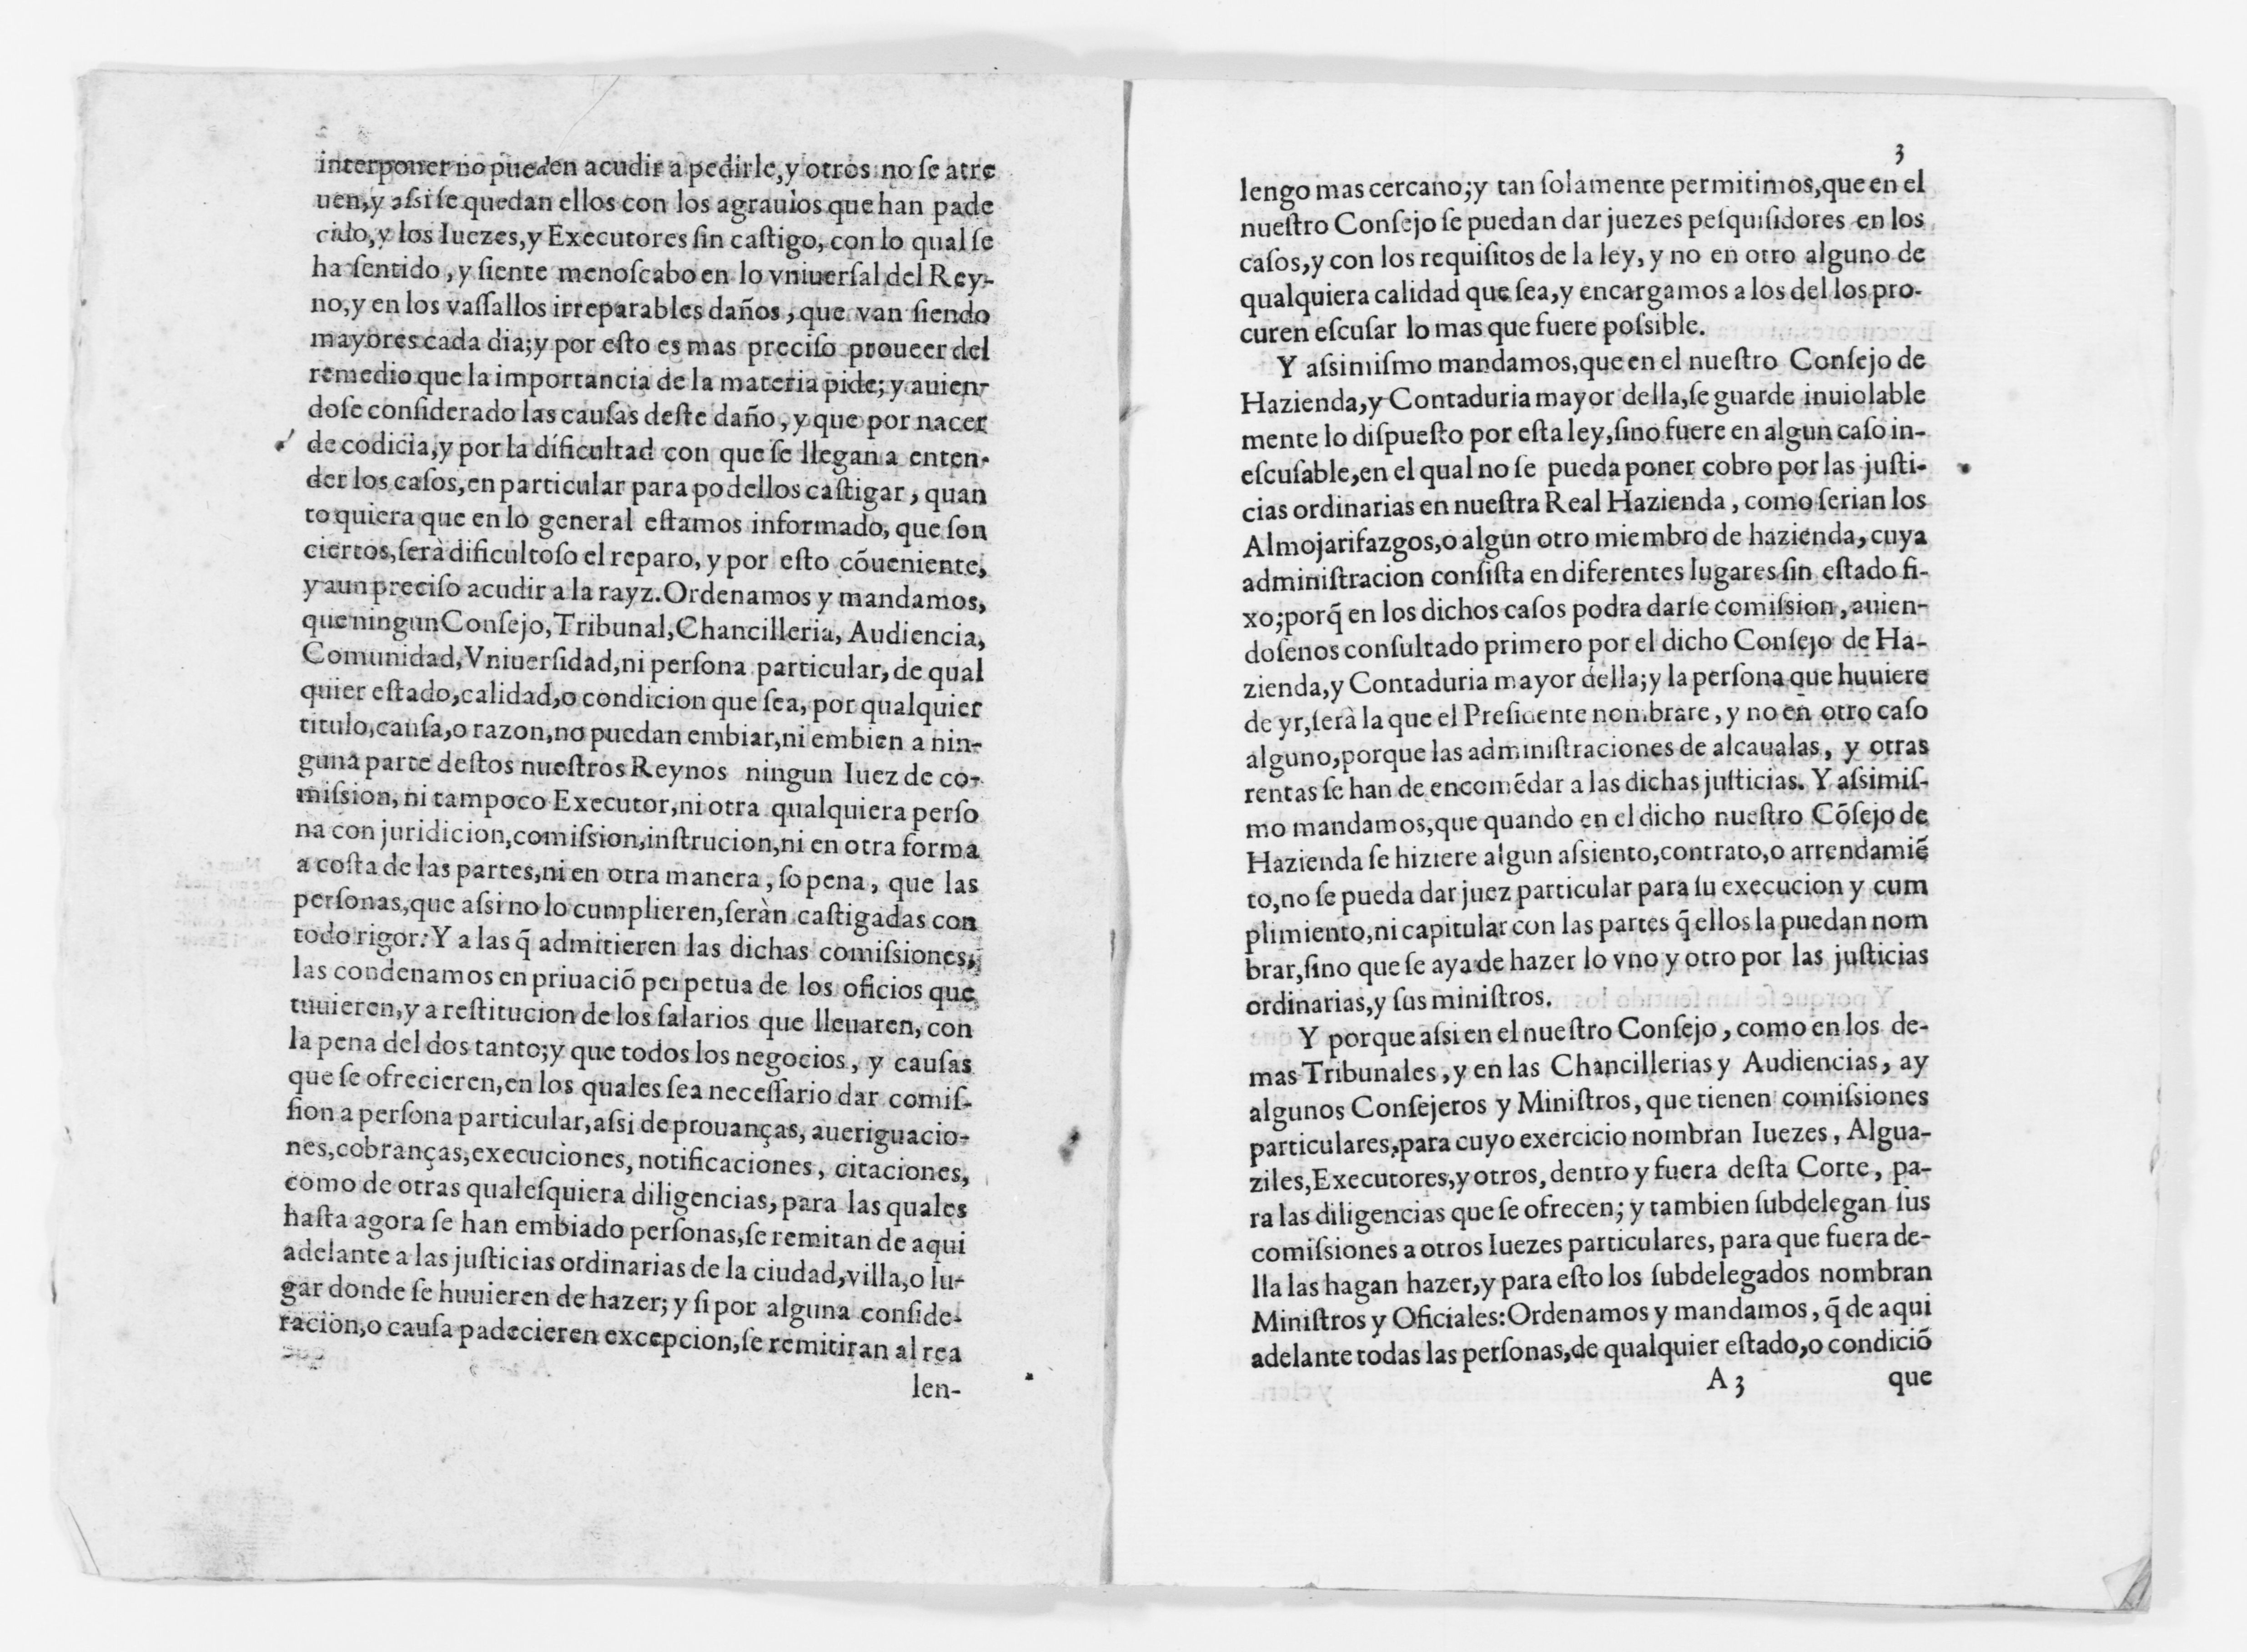 interponer no pueden acudir a pedirle,y otros no ſe atre
uen,y aſsi ſe quedan ellos con los agrauios que han pade
cido,y los Iuezes,y Executores ſin caſtigo, con lo qual ſe
ha ſentido, y ſiente menoſcabo en lo vniuerſal del Rey-
no,y en los vaſſallos irreparables daños, que van ſiendo
mayores cada dia;y por eſto es mas preciſo proueer del
remedio que la importancia de la materia pide; y auien-
doſe conſiderado las cauſas deſte daño, y que por nacer
de codicia,y por la dificultad con que ſe llegan a enten-
der los caſos,en particular para podellos caſtigar, quan
to quiera que en lo general eſtamos informado, que ſon
ciertos,ſerà dificultoſo el reparo, y por eſto cõueniente,
y aun preciſo acudir a la rayz. Ordenamos y mandamos,
que ningun Conſejo, Tribunal, Chancilleria, Audiencia,
Comunidad, Vniuerſidad,ni perſona particular, de qual
quier eſtado,calidad,o condicion que ſea, por qualquier
titulo,cauſa,o razon,no puedan embiar,ni embien a nin-
guna parte deſtos nueſtros Reynos ningun Iuez de co-
miſsion, ni tampoco Executor,ni otra qualquiera perſo
na con juridicion,comiſsion,inſtrucion,ni en otra forma
a coſta de las partes,ni en otra manera, ſo pena, que las
perſonas,que aſsi no lo cumplieren,ſeràn caſtigadas con
todo rigor: Y a las q̃ admitieren las dichas comiſsiones,
las condenamos en priuaciõ perpetua de los oficios que
tuuieren,y a reſtitucion de los ſalarios que lleuaren, con
la pena del dos tanto;y que todos los negocios, y cauſas
que ſe ofrecieren,en los quales ſea neceſſario dar comiſ-
ſion a perſona particular,aſsi de prouanças, aueriguacio-
nes,cobranças,execuciones, notificaciones, citaciones,
como de otras qualeſquiera diligencias, para las quales
haſta agora ſe han embiado perſonas,ſe remitan de aqui
adelante a las juſticias ordinarias de la ciudad,villa,o lu-
gar donde ſe huuieren de hazer; y ſi por alguna conſide-
racion,o cauſa padecieren excepcion,ſe remitiran al rea
len-
3
lengo mas cercano;y tan ſolamente permitimos,que en el
nueſtro Conſejo ſe puedan dar juezes peſquiſidores en los
caſos,y con los requiſitos de la ley, y no en otro alguno de
qualquiera calidad que ſea,y encargamos a los del los pro-
curen eſcuſar lo mas que fuere poſsible.
Y aſsimiſmo mandamos,que en el nueſtro Conſejo de
Hazienda,y Contaduria mayor della,ſe guarde inuiolable
mente lo diſpueſto por eſta ley,ſino fuere en algun caſo in-
eſcuſable,en el qual no ſe pueda poner cobro por las juſti-
cias ordinarias en nueſtra Real Hazienda, como ſerian los
Almojarifazgos,o algun otro miembro de hazienda, cuya
adminiſtracion conſiſta en diferentes lugares ſin eſtado fi-
xo;porq̃ en los dichos caſos podra darſe comiſsion, auien-
doſenos conſultado primero por el dicho Conſejo de Ha-
zienda,y Contaduria mayor della;y la perſona que huuiere
de yr,ſerà la que el Preſidente nombrare, y no en otro caſo
alguno,porque las adminiſtraciones de alcaualas, y otras
rentas ſe han de encomẽdar a las dichas juſticias. Y aſsimiſ-
mo mandamos,que quando en el dicho nueſtro Cõſejo de
Hazienda ſe hiziere algun aſsiento,contrato,o arrendamiẽ
to,no ſe pueda dar juez particular para ſu execucion y cum
plimiento,ni capitular con las partes q̃ ellos la puedan nom
brar,ſino que ſe aya de hazer lo vno y otro por las juſticias
ordinarias,y ſus miniſtros.
Y porque aſsi en el nueſtro Conſejo, como en los de-
mas Tribunales, y en las Chancillerias y Audiencias, ay
algunos Conſejeros y Miniſtros, que tienen comiſsiones
particulares,para cuyo exercicio nombran Iuezes, Algua-
ziles,Executores,y otros, dentro y fuera deſta Corte, pa-
ra las diligencias que ſe ofrecen; y tambien ſubdelegan ſus
comiſsiones a otros Iuezes particulares, para que fuera de-
lla las hagan hazer,y para eſto los ſubdelegados nombran
Miniſtros y Oficiales: Ordenamos y mandamos, q̃ de aqui
adelante todas las perſonas,de qualquier eſtado,o condiciõ
A 3 que